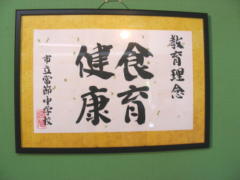 教育理念
食育
健康
市立 中学校